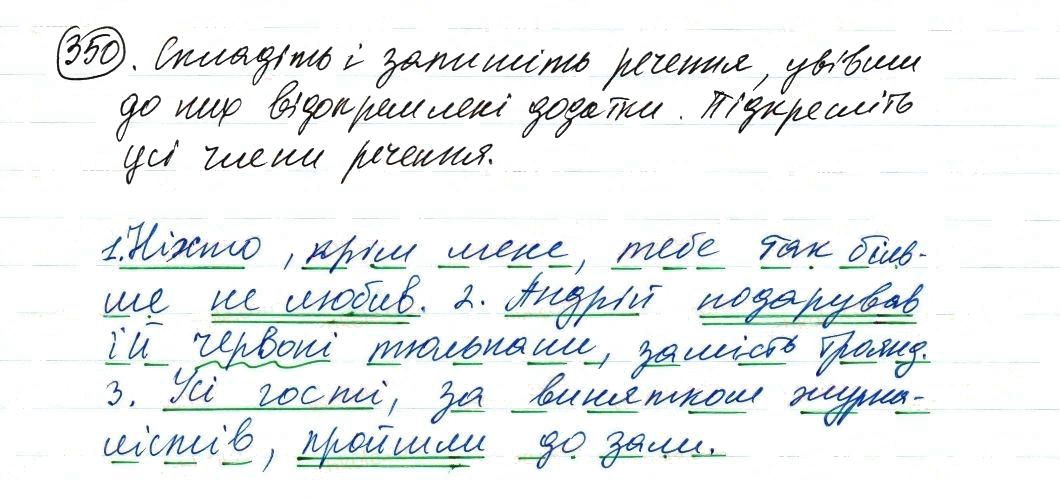 350. Складіть і запишіть речення, увівши
до них відокремлені додатки. Підкресліть
усі члени речення.
1. Ніхто, крім мене, тебе так біль-
ше не любив. 2. Андрій подарував
їй червоні тюльпани, замість троянд.
3. Усі гості, за винятком журна-
лістів, пройшли до зали.